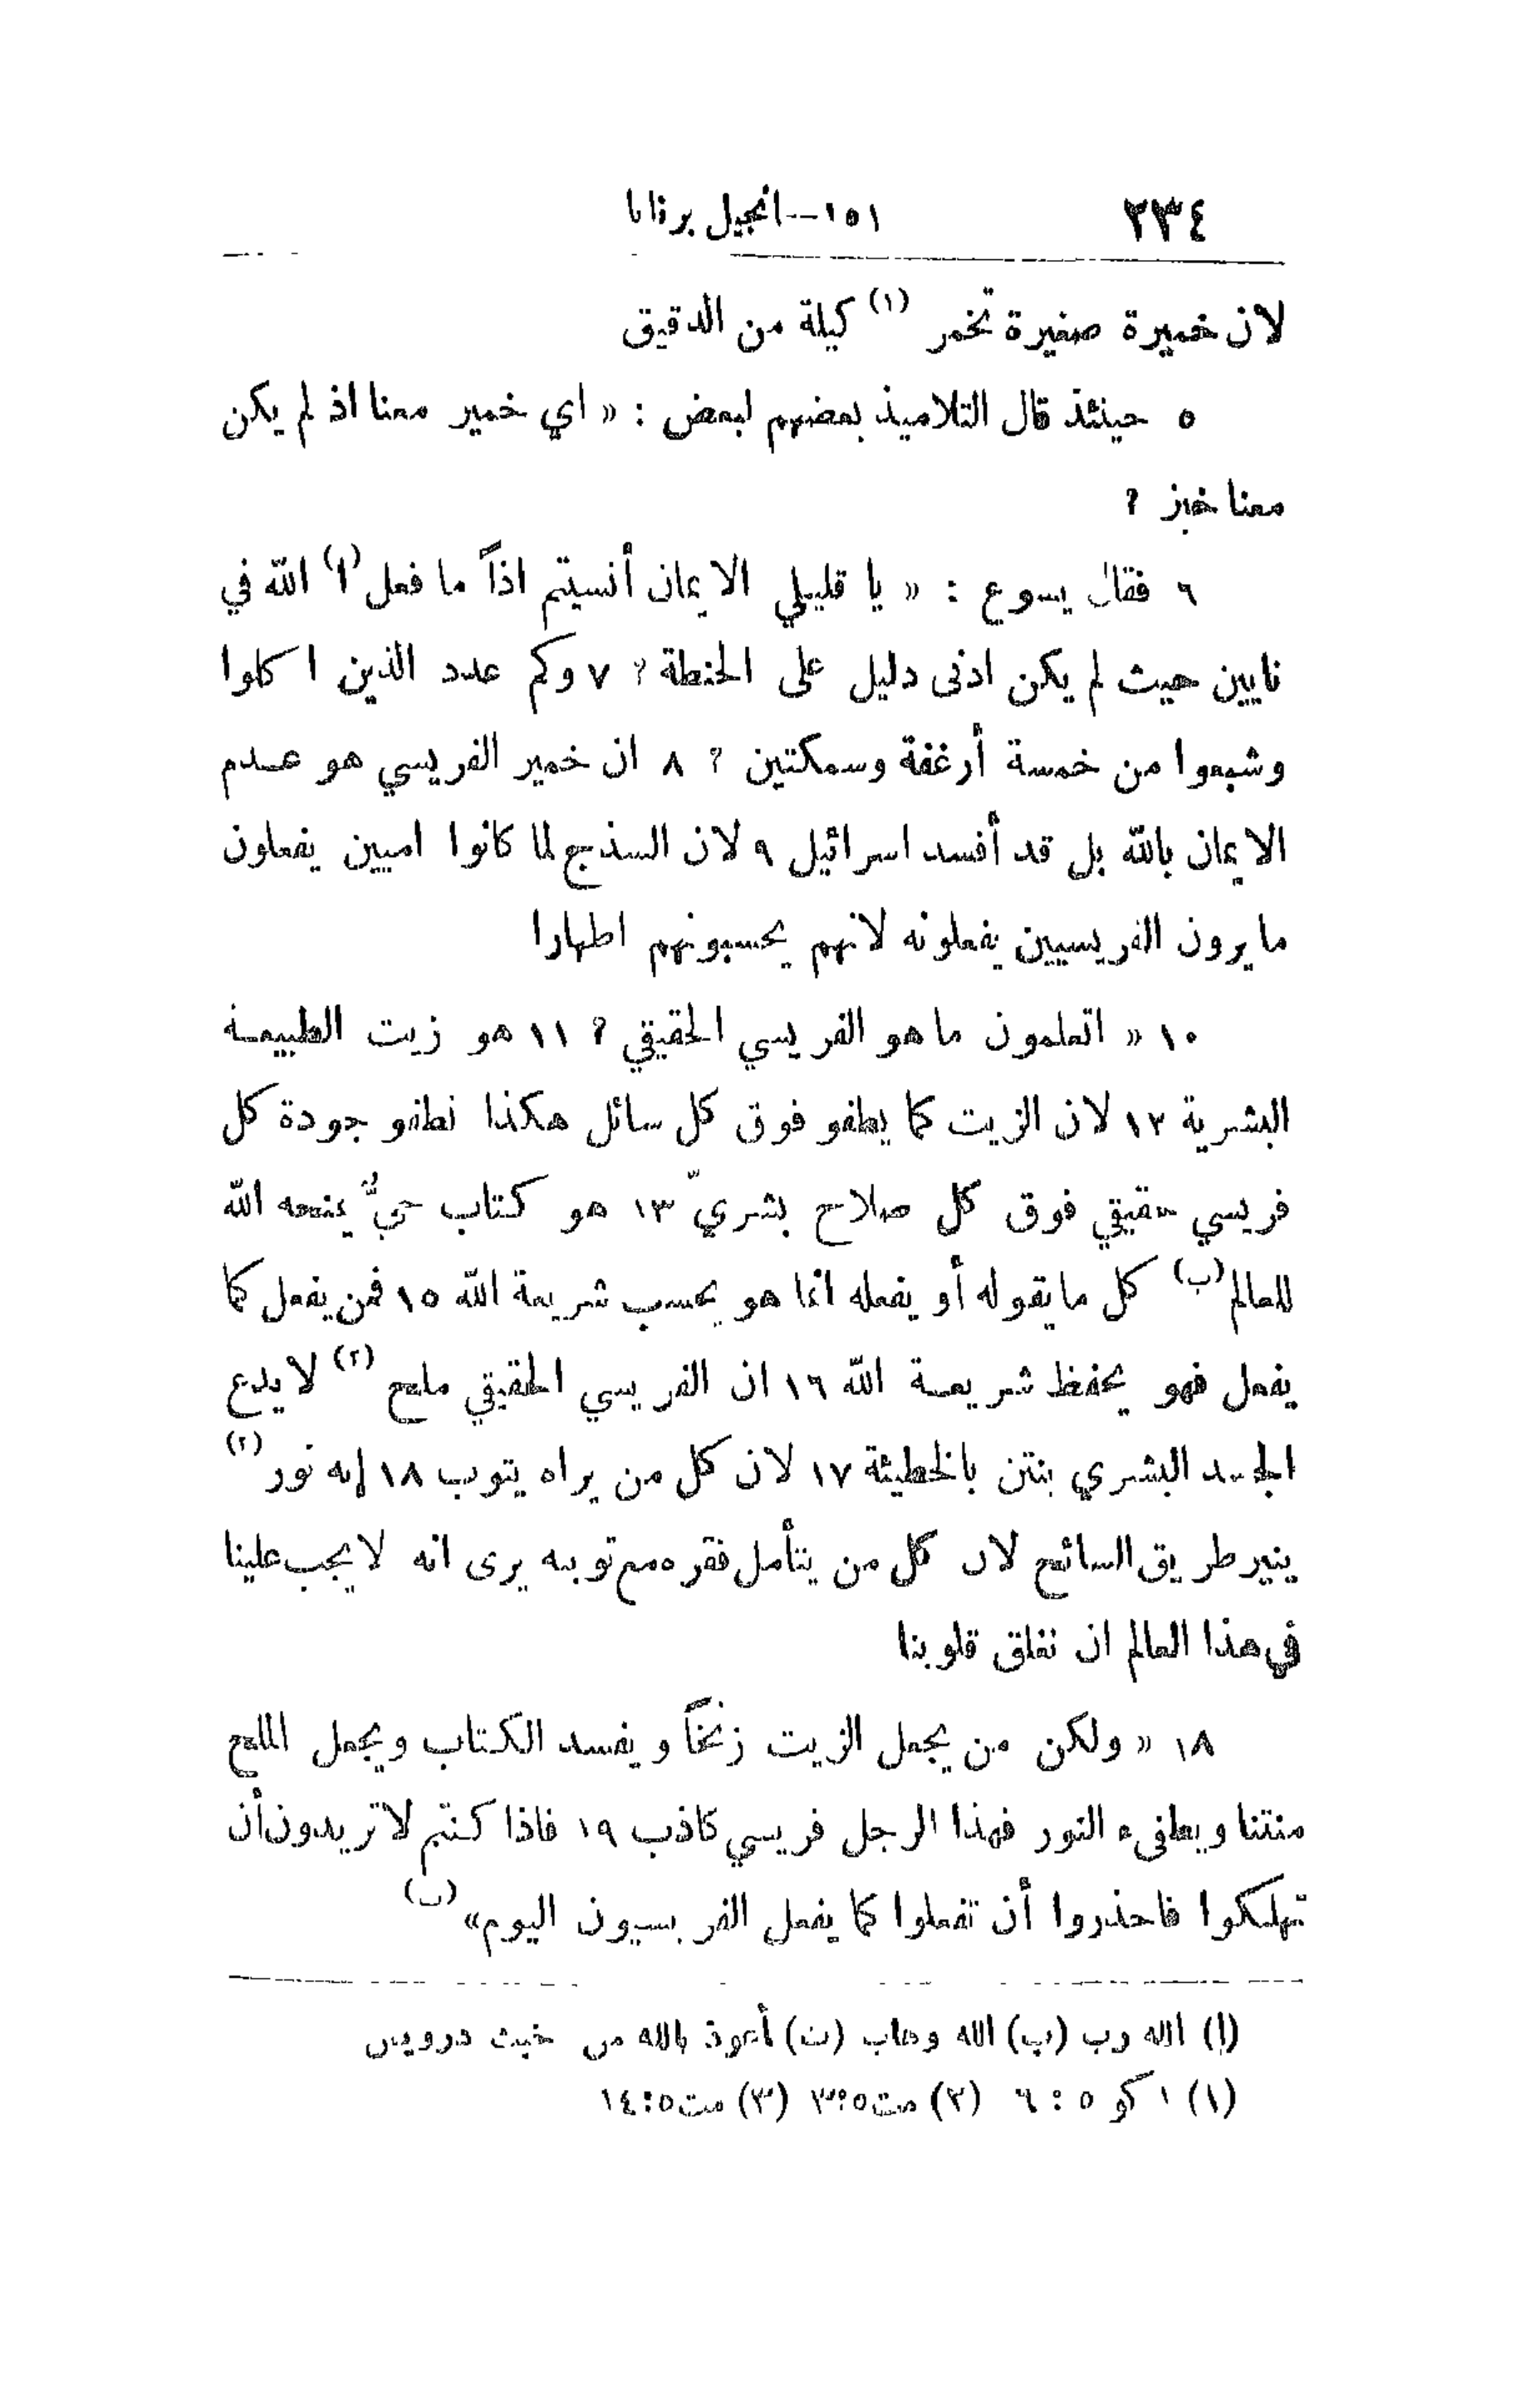 ٢٣٤ ١٥١--انجيل برنابا
لان خميرة صغيرة تخمر (١) كيلة من الدقيق
٥ حينئذ قال التلاميذ بعضهم لبعض : « اي خمير معنا اذ لم يكن
معنا خبز ؟
٦ فقال يسوع : « يا قليلي الايمان أنسيتم اذاً ما فعل (ا) الله في
نايين حيث لم يكن ادنى دليل على الحنطة ؟ ٧ وكم عدد الذين اكلوا
وشبعوا من خمسة أرغفة وسمكتين ؟ ٨ ان خمير الفريسي هو عدم
الايمان بالله بل قد أفسد اسرائيل ٩ لان السذج لما كانوا اميين يفعلون
ما يرون الفريسيين يفعلونه لانهم يحسبونهم اطهارا
١٠ « اتعلمون ما هو الفريسي الحقيقي ؟ ١١ هو زيت الطبيعة
البشرية ١٢ لان الزيت كما يطفو فوق كل سائل هكذا تطفو جودة كل
فريسي حقيقي فوق كل صلاح بشريّ ١٣ هو كتاب حيٌّ يمنحه الله
للعالم (ب) كل ما يقوله أو يفعله انما هو بحسب شريعة الله ١٥ فمن يفعل كما
يفعل فهو يحفظ شريعة الله ١٦ ان الفريسي الحقيقي ملح (٢) لا يدع
الجسد البشري ينتن بالخطيئة ١٧ لان كل من يراه يتوب ١٨ إنه نور (٢)
ينير طريق السائح لان كل من يتأمل فقره مع توبته يرى انه لا يجب علينا
في هذا العالم ان نغلق قلوبنا
١٨ « ولكن من يجعل الزيت زنخاً ويفسد الكتاب ويجعل الملح
منتنا ويطفىء النور فهذا الرجل فريسي كاذب ١٩ فاذا كنتم لا تريدون أن
تهلكوا فاحذروا أن تفعلوا كما يفعل الفريسيون اليوم» (ت)
(ا) الله رب (ب) الله وهاب (ت) أعوذ بالله من خبث درويس
(١) ١ كو ٥ : ٦ (٢) مت ٥:١٣ (٣) مت ٥:١٤